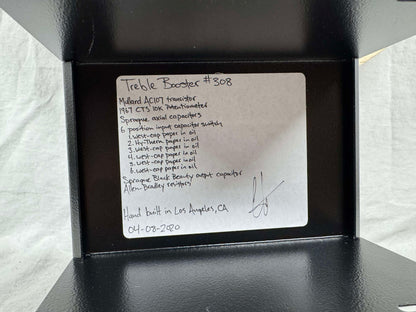 Treble Booster #308
Mullard AC107 transistor
1967 CTS 10K Potentiometer
Sprague axial capacitors
6 position input capacitor switch
1. West-cap paper in oil
2. Hy-Therm paper in oil
3. West-cap paper in oil
4. West-cap paper in oil
5. West-cap paper in oil
6. West-cap paper in oil
Sprague Black Beauty output capacitor
Allen-Bradley resistors
Hand built in Los Angeles, CA
04-08-2020